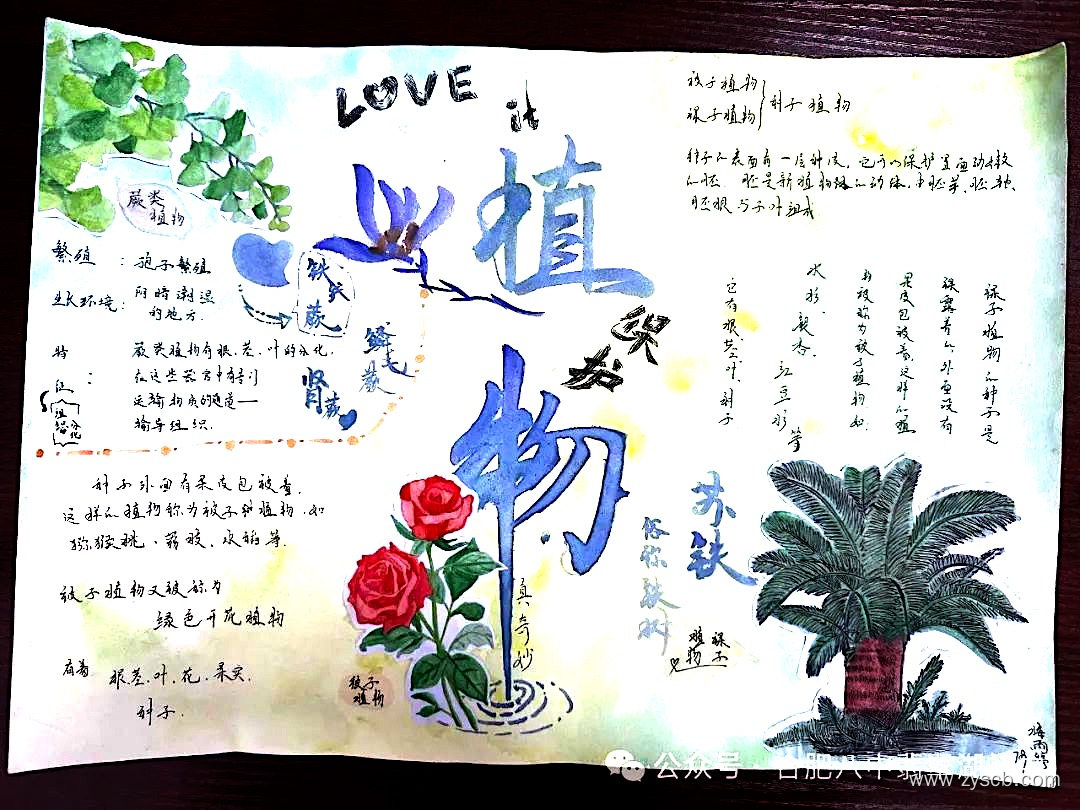 LOVE
it
植
物
保护
真奇妙
蕨类
植物
繁殖：孢子繁殖
生长环境：阴暗潮湿
的地方.
特征：
蕨类植物有根、茎、叶的分化,
在这些器官中有专门
运输物质的通道——
输导组织.
组织
分化
铁线
蕨
鳞毛蕨
肾蕨
种子外面有果皮包被着,
这样的植物称为被子植物.如
猕猴桃、荔枝、水稻等.
被子植物又被称为
绿色开花植物
有着
根、茎、叶、花、果实、
种子.
被子
植物
被子植物
裸子植物
种子植物
种子的表面有一层种皮,它可以保护里面幼嫩
的胚 胚是新植物体的幼体.由胚芽、胚轴、
胚根与子叶组成
裸子植物的种子是
裸露着的,外面没有
果皮包被着,这样的植
物被称为裸子植物.如
水杉、银杏、红豆杉等
它有根、茎、叶、种子
苏铁
俗称铁树
裸子
植物
公众号
www.zyscb.com